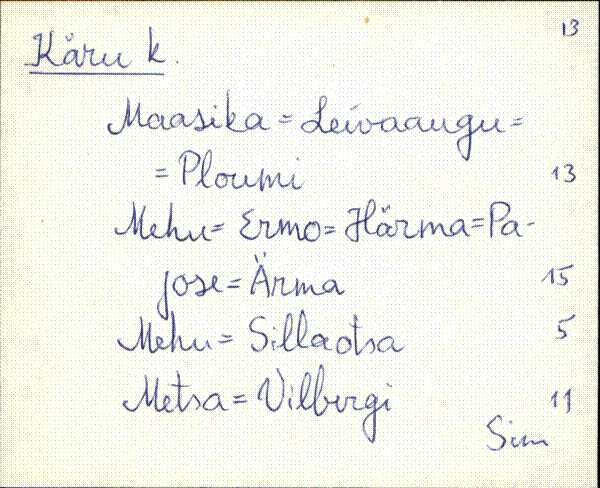 13
Käru k.
Maasika = Leivaaugu =
= Ploumi 13
Mehu = Ermo = Härma = Pa-
jose = Ärma 15
Mehu = Sillaotsa 5
Metsa = Vilbergi 11
Sim